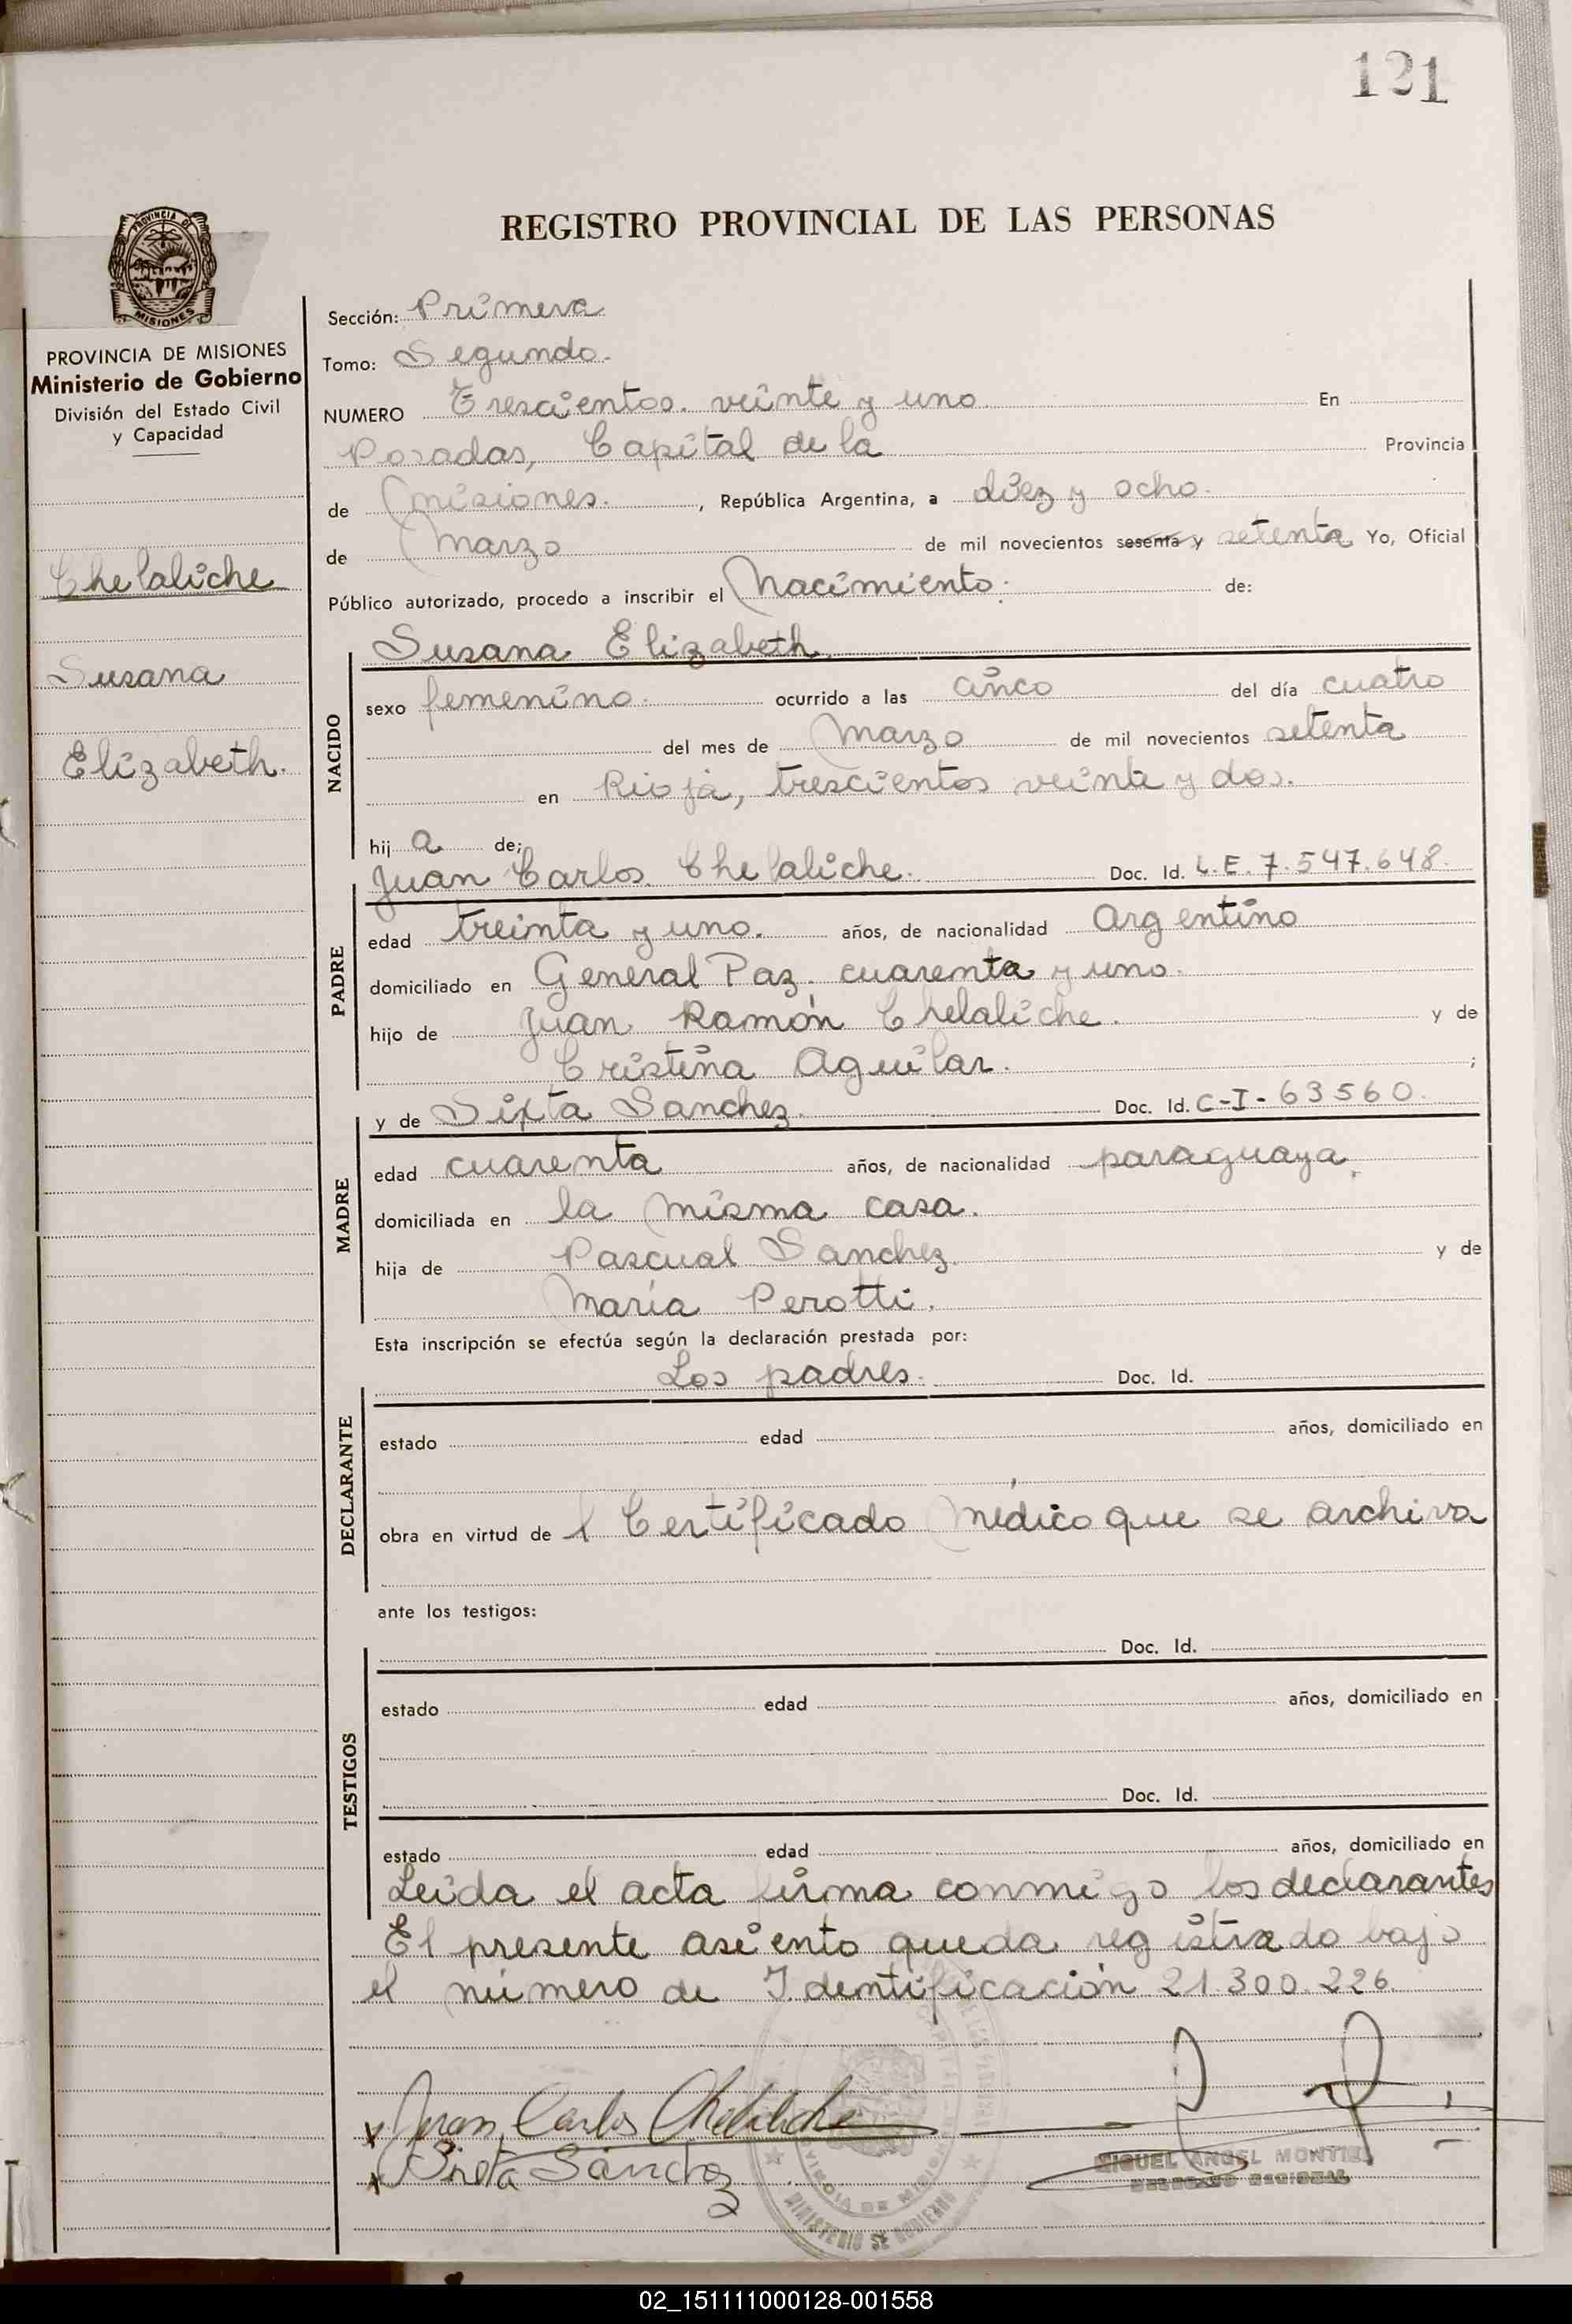 121
REGISTRO PROVINCIAL DE LAS PERSONAS
PROVINCIA DE
MISIONES
PROVINCIA DE MISIONES
Ministerio de Gobierno
División del Estado Civil
y Capacidad
Chelaliche
Susana
Elizabeth.
Sección: Primera
Tomo: Segundo.
NUMERO Trescientos. veinte y uno En
Posadas, Capital de la Provincia
de Misiones. , República Argentina, a diez y ocho.
de Marzo de mil novecientos sesenta y setenta Yo, Oficial
Público autorizado, procedo a inscribir el Nacimiento. de:
NACIDO
Susana Elizabeth.
sexo femenino. ocurrido a las cinco del día cuatro
del mes de Marzo de mil novecientos setenta
en Rioja, trescientos veinte y dos.
hij a de;
PADRE
Juan Carlos Chelaliche. Doc. Id. L.E. 7.547.648.
edad treinta y uno. años, de nacionalidad Argentino
domiciliado en General Paz, cuarenta y uno.
hijo de Juan Ramón Chelaliche. y de
Cristina Aguilar. ;
MADRE
y de Sixta Sanchez. Doc. Id. C-I-63560.
edad cuarenta años, de nacionalidad paraguaya.
domiciliada en la misma casa.
hija de Pascual Sanchez. y de
María Perotti.
Esta inscripción se efectúa según la declaración prestada por:
DECLARANTE
Los padres. Doc. Id.
estado edad años, domiciliado en
obra en virtud de l Certificado Médico que se archiva
ante los testigos:
TESTIGOS
Doc. Id.
estado edad años, domiciliado en
Doc. Id.
estado edad años, domiciliado en
Leida el acta firma conmigo los declarantes
El presente asiento queda registrado bajo
el número de Identificación 21.300.226.
x Juan Carlos Chelaliche
x Sixta Sánchez
MIGUEL ANGEL MONTIEL
DELEGADO REGIONAL
MINISTERIO DE GOBIERNO
02_151111000128-001558